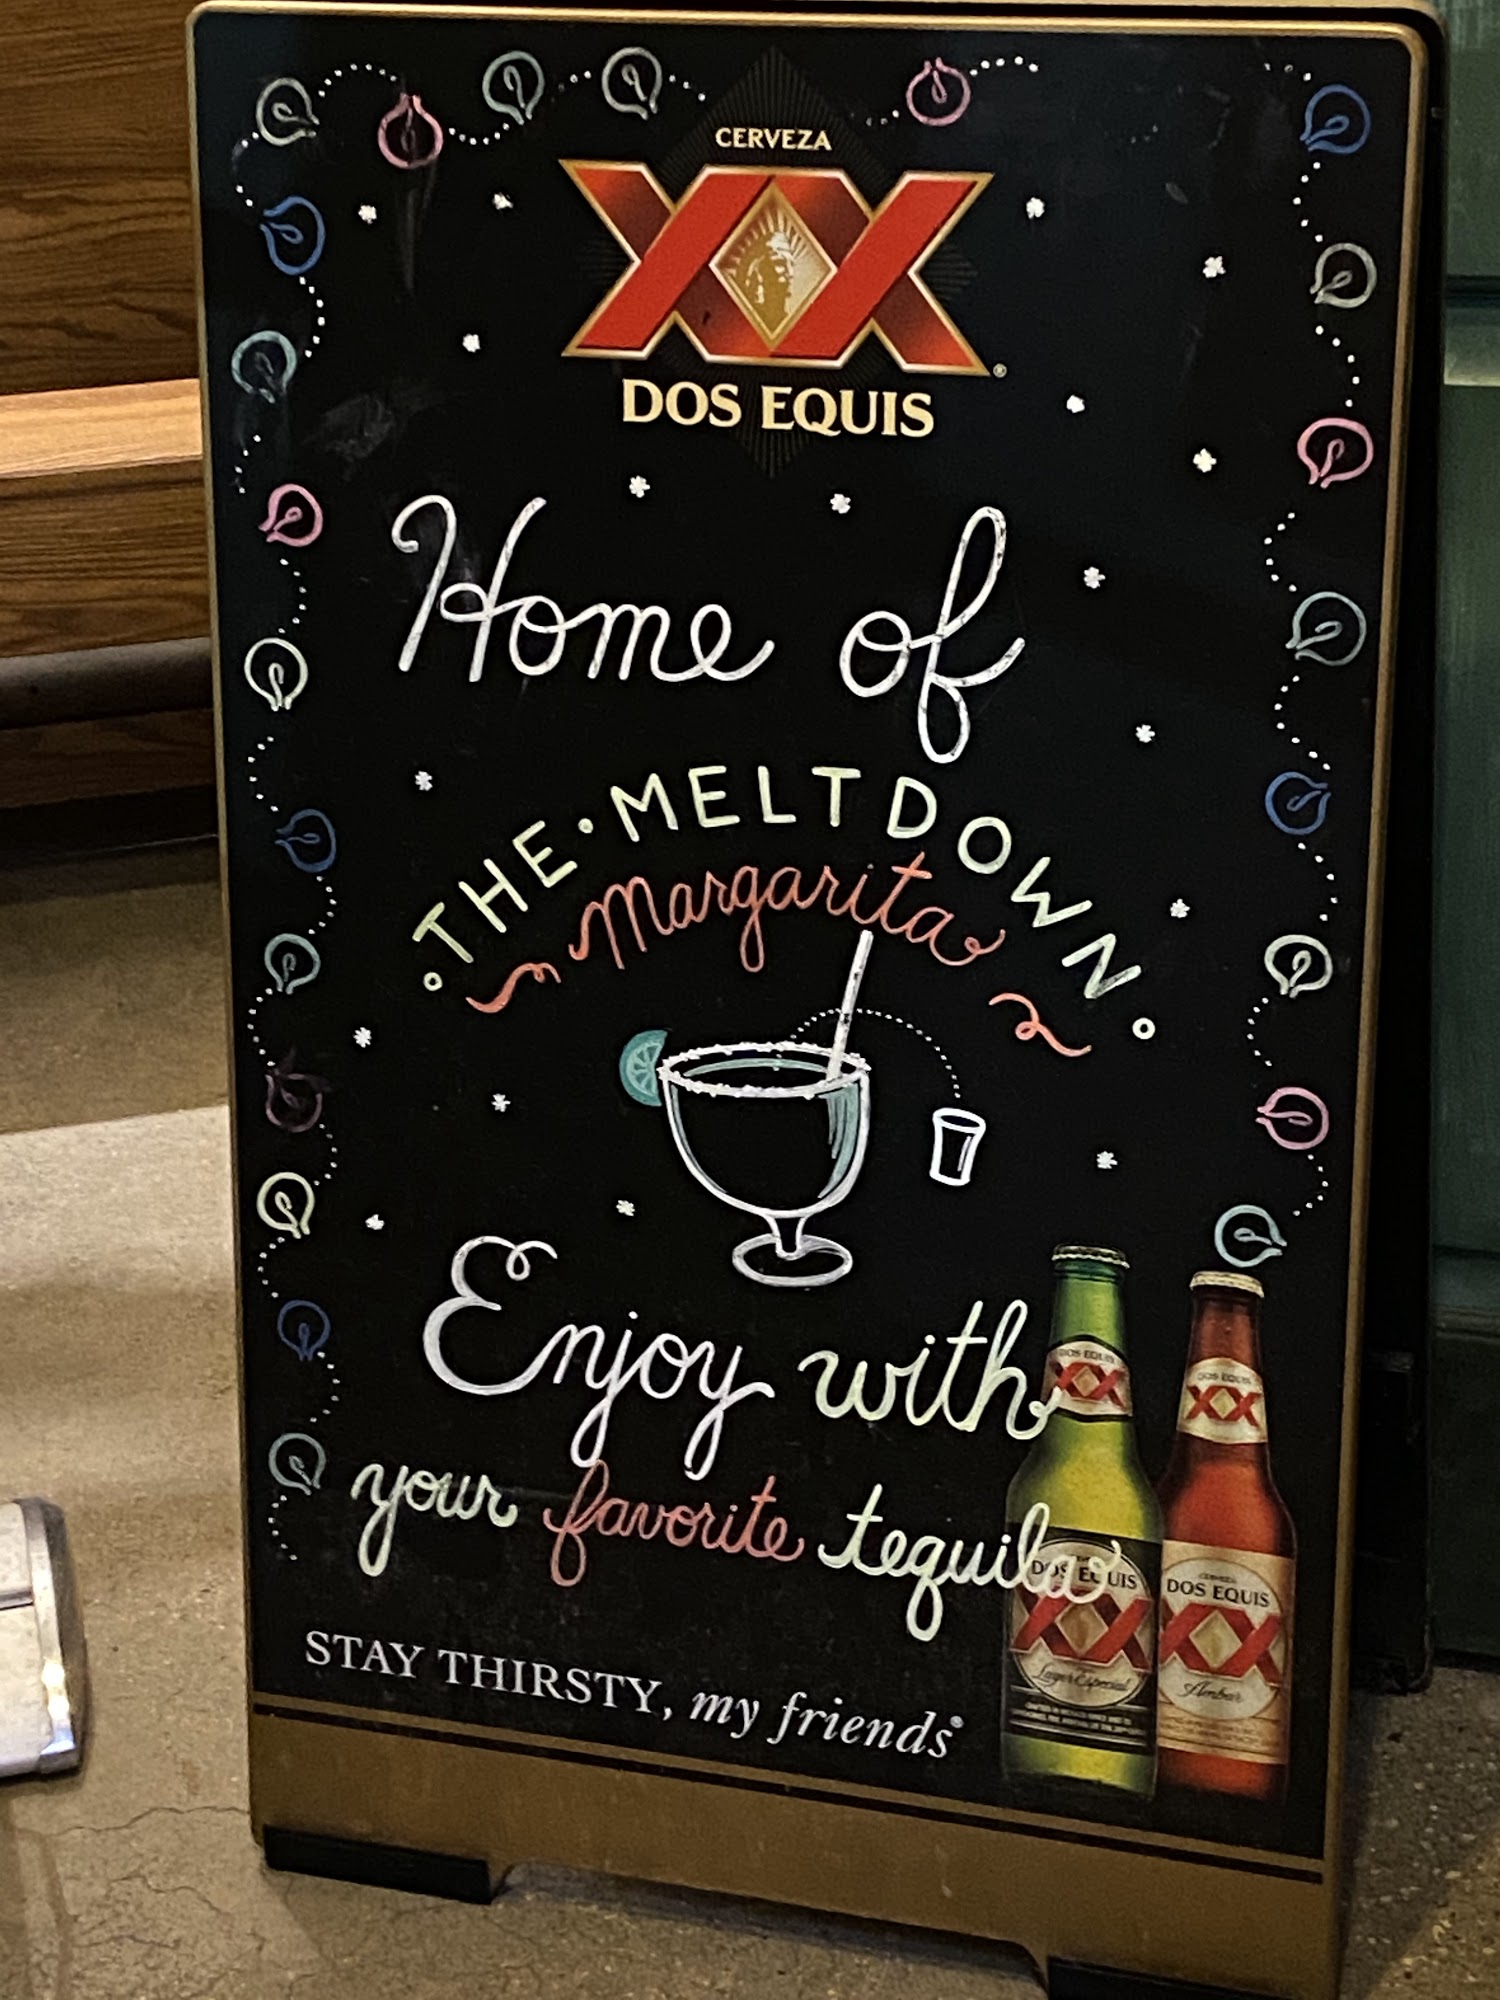 CERVEZA
XX
DOS EQUIS
Home of
THE • MELTDOWN
Margarita
Enjoy with
your favorite tequila
STAY THIRSTY, my friends®
DOS EQUIS
XX
DOS EQUIS
XX
DOS EQUIS
XX
Lager Especial
CERVEZA
DOS EQUIS
XX
Ambar